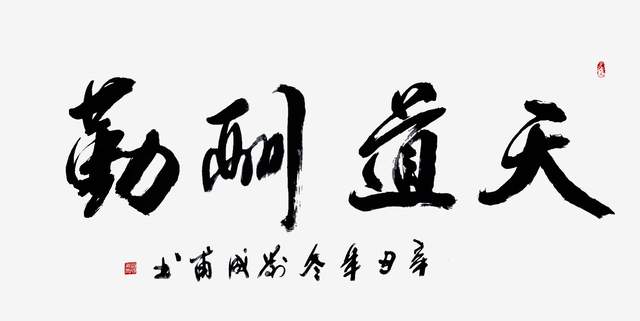 天道酬勤
辛丑年冬刘成甫书